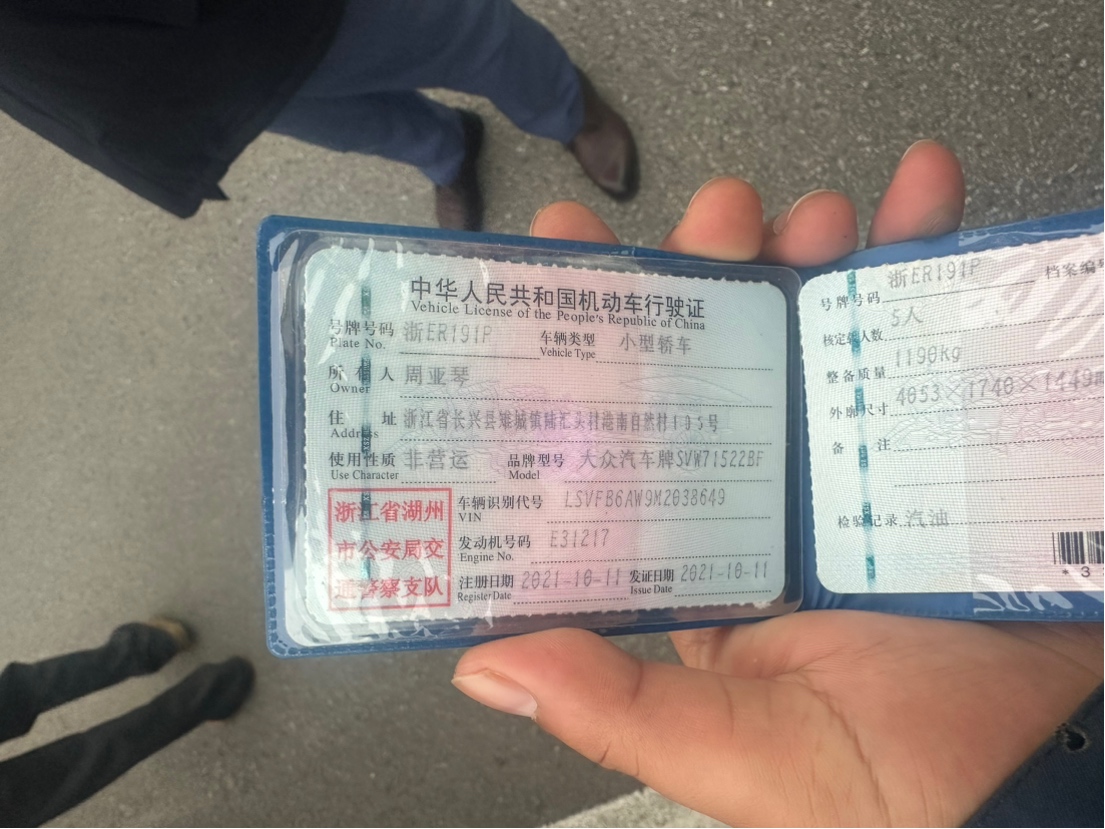 中华人民共和国机动车行驶证
Vehicle License of the People's Republic of China
号牌号码 浙ER191P 车辆类型 小型轿车
Plate No. Vehicle Type
所有人 周亚琴
Owner
住址 浙江省长兴县雉城镇陆汇头村港南自然村105号
Address
使用性质 非营运 品牌型号 大众汽车牌SVW71522BF
Use Character Model
车辆识别代号 LSVFB6AW9M2038649
VIN
发动机号码 E31217
Engine No.
注册日期 2021-10-11 发证日期 2021-10-11
Register Date Issue Date
浙江省湖州
市公安局交
通警察支队
号牌号码 浙ER191P 档案编号
核定载人数 5人
整备质量 1190kg
外廓尺寸 4053×1740×1449m
备注
检验记录 汽油
* 3